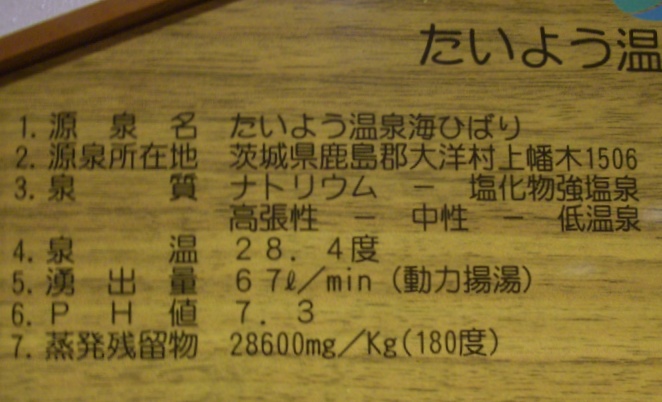 たいよう温
1. 源泉名 たいよう温泉海ひばり
2. 源泉所在地 茨城県鹿島郡大洋村上幡木1506
3. 泉質 ナトリウム － 塩化物強塩泉
高張性 － 中性 － 低温泉
4. 泉温 28．4度
5. 湧出量 67ℓ／min（動力揚湯）
6. PH値 7．3
7. 蒸発残留物 28600mg／Kg(180度)